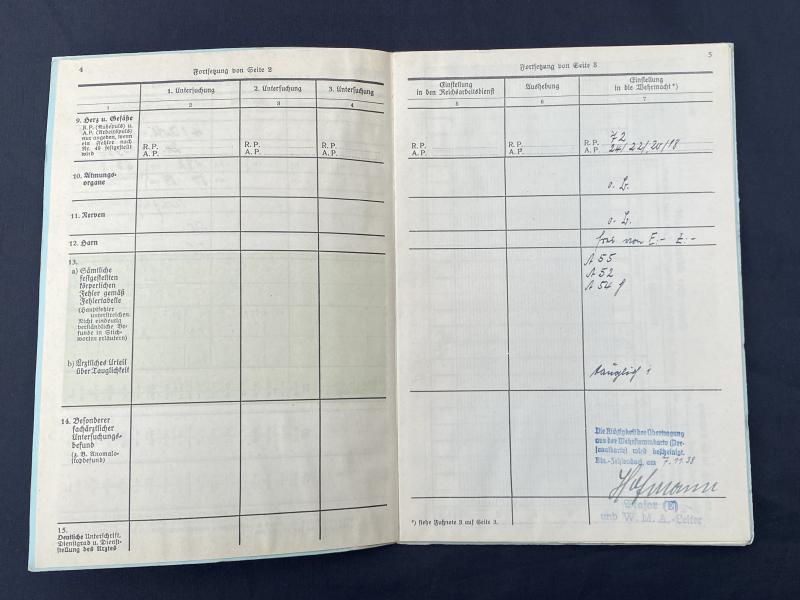 4
Fortsetzung von Seite 2
1. Untersuchung
2. Untersuchung
3. Untersuchung
1
2
3
4
9. Herz u. Gefäße
R.P. (Ruhepuls) u.
A.P. (Arbeitspuls)
nur angeben, wenn
ein Fehler nach
Nr. 49 festgestellt
wird
R.P.
A.P.
R.P.
A.P.
R.P.
A.P.
10. Atmungs-
organe
11. Nerven
12. Harn
13.
a) Sämtliche
festgestellten
körperlichen
Fehler gemäß
Fehlertabelle
(Hauptfehler
unterstreichen.
Nicht eindeutig
verständliche Be-
funde in Stich-
worten erläutern)
b) Ärztliches Urteil
über Tauglichkeit
14. Besonderer
fachärztlicher
Untersuchungs-
befund
(z. B. Anomalo-
skopbefund)
15.
Deutliche Unterschrift,
Dienstgrad u. Dienst-
stellung des Arztes
5
Fortsetzung von Seite 3
Einstellung
in den Reichsarbeitsdienst
Aushebung
Einstellung
in die Wehrmacht*)
5
6
7
R.P.
A.P.
R.P.
A.P.
R.P. 72
A.P. 24/22/20/18
o. B.
o. B.
frei von E.- Z.-
A 55
A 52
A 54
tauglich 1
Die Richtigkeit der Übertragung
aus der Wehrstammkarte (Per-
sonalkarte) wird bescheinigt.
am 7.11.38
Hofmann
Major (E)
und W. M. A.-Leiter
*) siehe Fußnote 3 auf Seite 3.